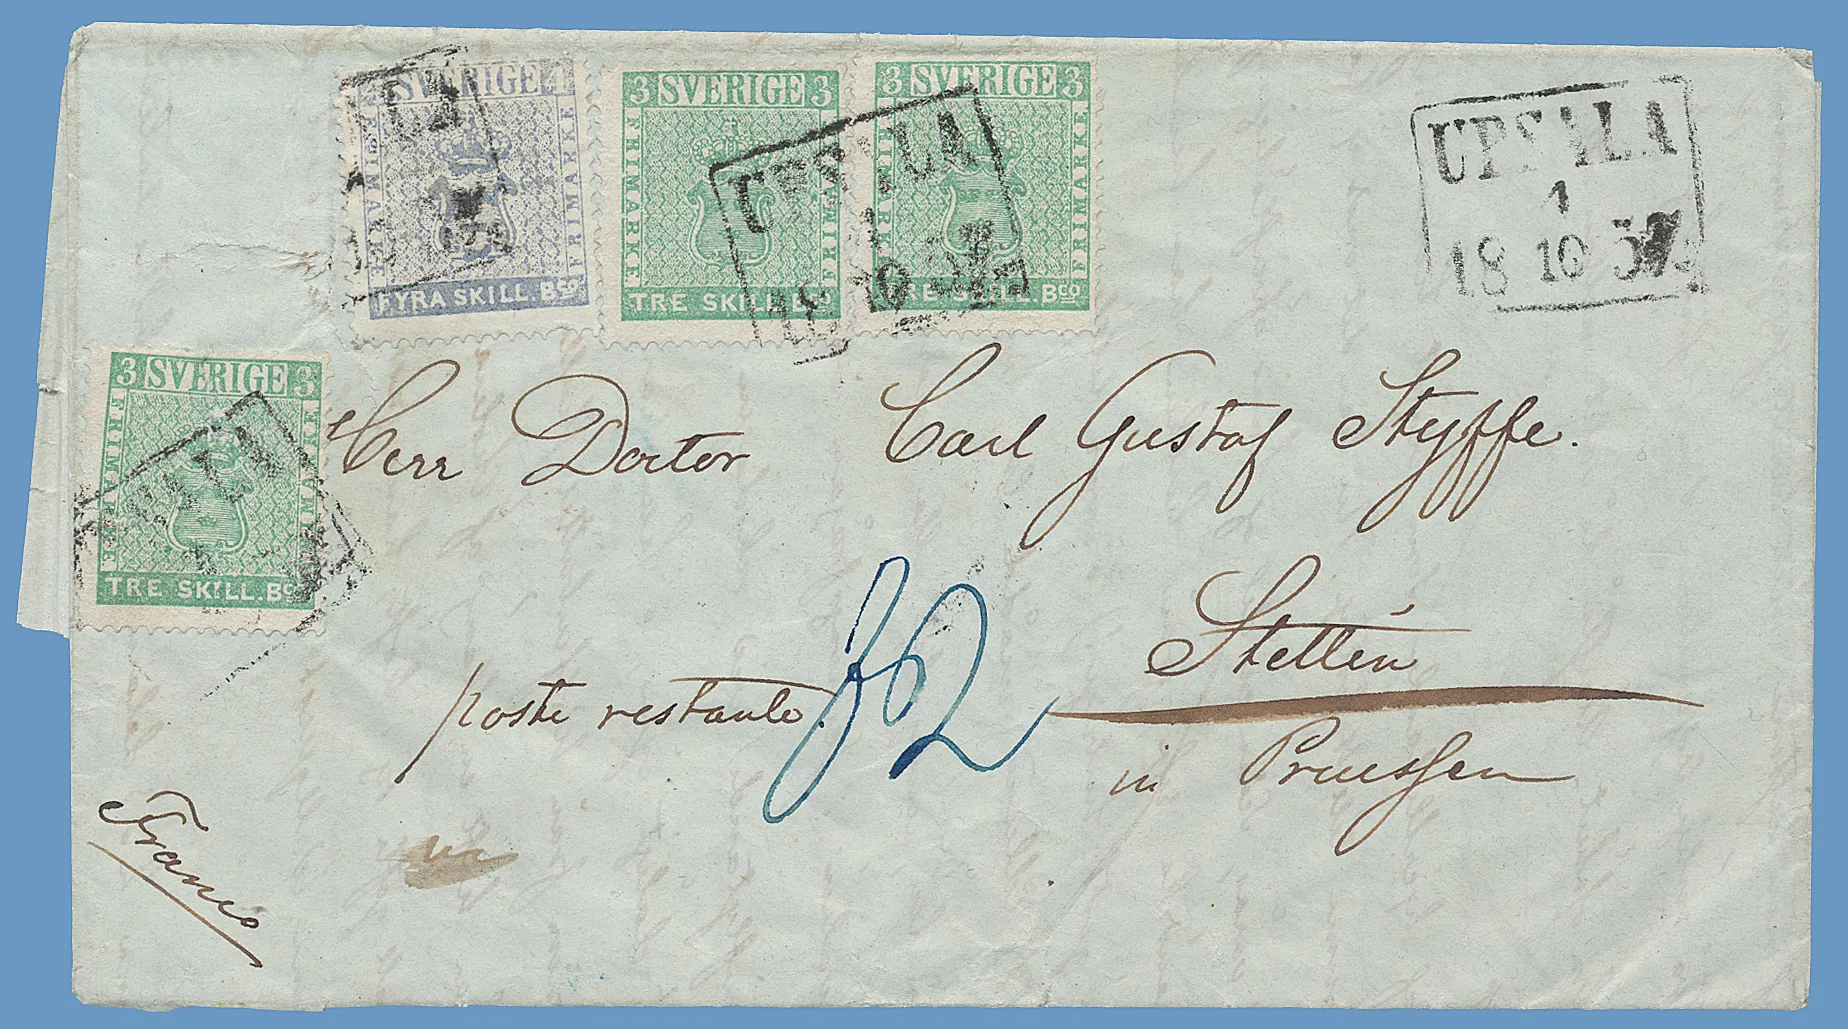 4 SVERIGE 4
FRIMÄRKE
FRIMÄRKE
FYRA SKILL. Bco
3 SVERIGE 3
FRIMÄRKE
FRIMÄRKE
TRE SKILL. Bco
3 SVERIGE 3
FRIMÄRKE
FRIMÄRKE
TRE SKILL. Bco
UPSALA
1
18 10 57
UPSALA
1
18 10 57
3 SVERIGE 3
FRIMÄRKE
FRIMÄRKE
TRE SKILL. Bco
UPSALA
1
Herr Doctor Carl Gustaf Styffe.
Stettin
poste restante.
in Preussen
Franco